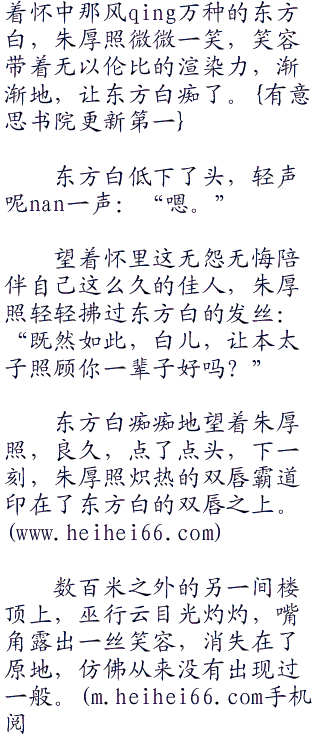 着怀中那风qing万种的东方
白，朱厚照微微一笑，笑容
带着无以伦比的渲染力，渐
渐地，让东方白痴了。{有意
思书院更新第一}
东方白低下了头，轻声
呢nan一声：“嗯。”
望着怀里这无怨无悔陪
伴自己这么久的佳人，朱厚
照轻轻拂过东方白的发丝：
“既然如此，白儿，让本太
子照顾你一辈子好吗？”
东方白痴痴地望着朱厚
照，良久，点了点头，下一
刻，朱厚照炽热的双唇霸道
印在了东方白的双唇之上。
(www.heihei66.com)
数百米之外的另一间楼
顶上，巫行云目光灼灼，嘴
角露出一丝笑容，消失在了
原地，仿佛从来没有出现过
一般。(m.heihei66.com手机
阅